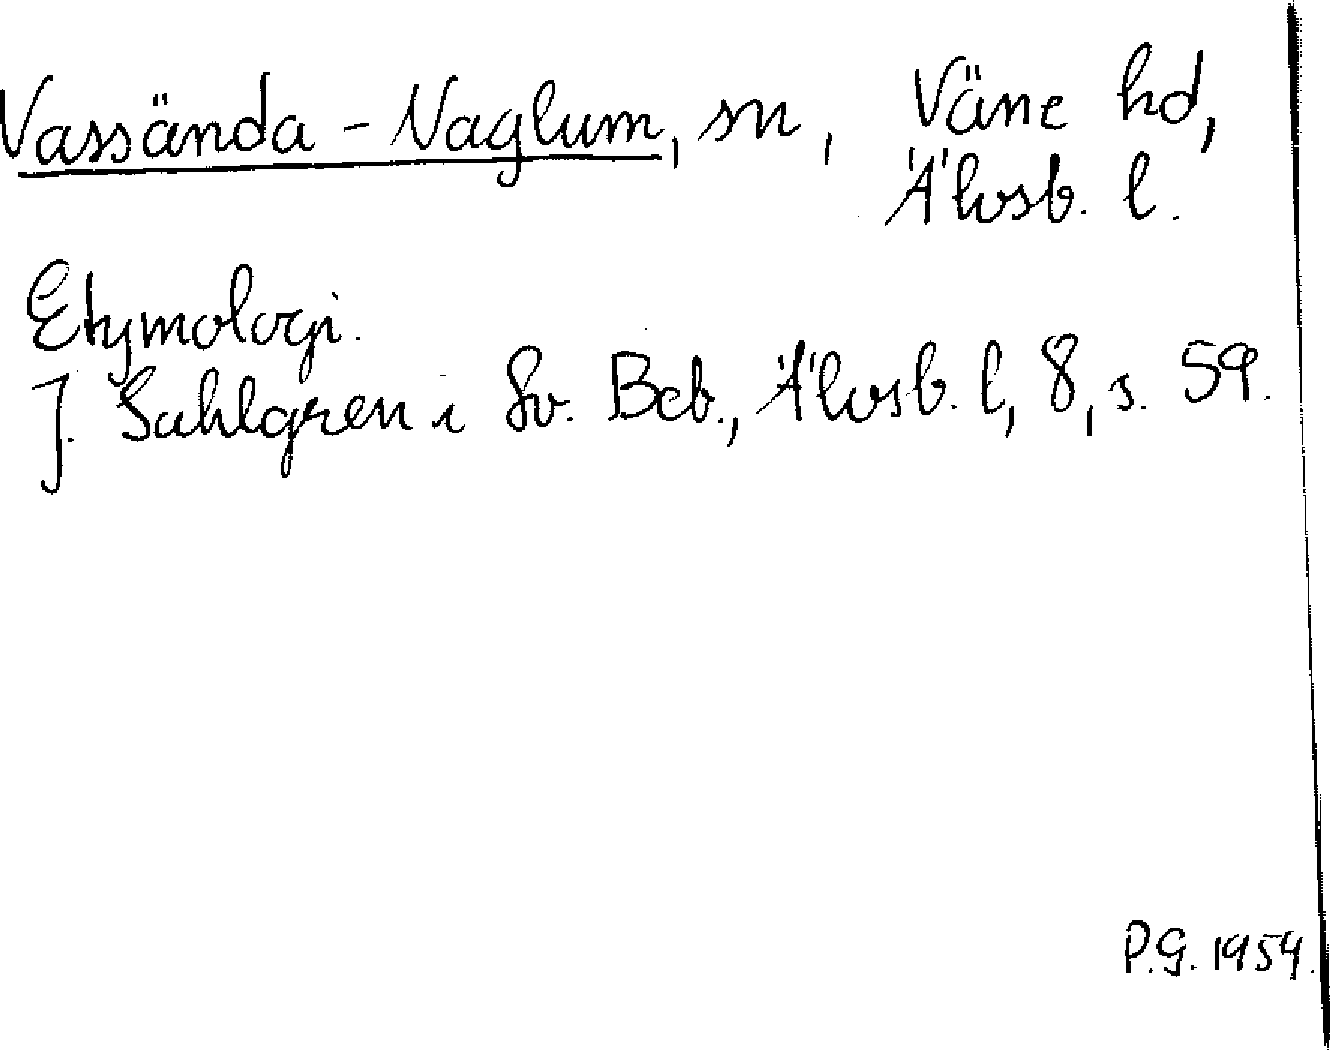 Vassända-Naglum, sn, Väne hd,
Älvsb. l.
Etymologi.
J. Sahlgren i Sv. Beb., Älvsb. l, 8, s. 59.
P.G. 1954.